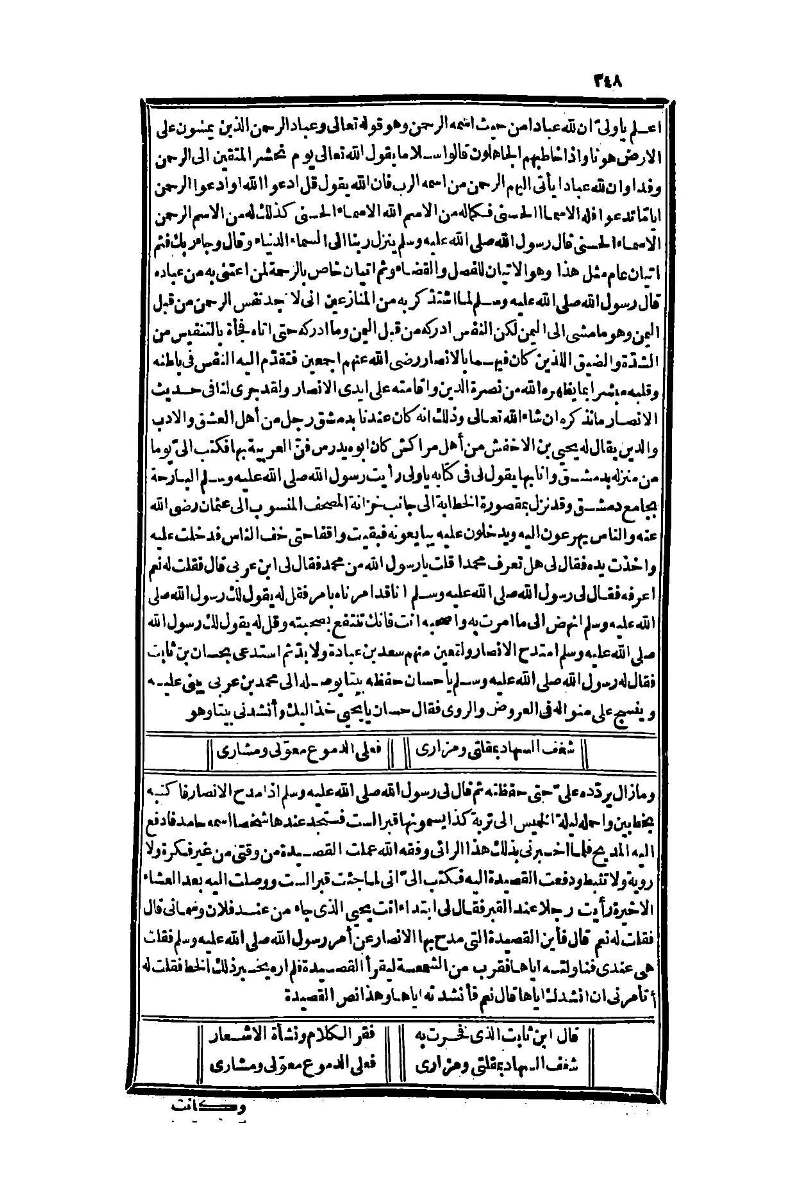 ٣٤٨
اعلم ياولى ان لله عبادا من حيث اسمه الرحمن وهو قوله تعالى وعباد الرحمن الذين يمشون على
الارض هونا واذا خاطبهم الجاهلون قالوا سلاما يقول الله تعالى يوم نحشر المتقين الى الرحمن
وفدا وان لله عبادا يأتى اليهم الرحمن من اسمه الرب فان الله يقول قل ادعوا الله اوادعوا الرحمن
اياتا تدعوا فله الاسماء الحسنى فكماله من الاسم الله الاسماء الحسنى كذلك له من الاسم الرحمن
الاسماء الحسنى قال رسول الله صلى الله عليه وسلم ينزل ربنا الى السماء الدنياء وقال وجاء ربك فثم
اتيان عام مثل هذا وهو الاتيان للفصل والقضاء وثم اتيان خاص بالرحمة لمن اعتنى به من عباده
قال رسول الله صلى الله عليه وسلم لما اشتد كربه من المنازعين انى لاجد نفس الرحمن من قبل
اليمن وهو ما مشى الى اليمن لكن النفس ادركه من قبل اليمن وما ادركه حتى اتاه فجأة بالتنفيس من
الشدة والضيق اللذين كان فيهما بالانصار رضى الله عنهم اجمعين فتقدم اليه النفس فى باطنه
وقلبه مبشرا بما يظهره الله من نصرة الدين واقامته على ايدى الانصار ولقد جرى لنا فى حديث
الانصار ما نذكره ان شاء الله تعالى وذلك انه كان عندنا بدمشق رجل من أهل العشق والادب
والدين يقال له يحيى بن الاخفش من أهل مراكش كان ابوه يدرس فن العربية بها فكتب الى يوما
من منزله بدمشق وانا بها يقول لى فى كتابه ياولى رأيت رسول الله صلى الله عليه وسلم البارحة
بجامع دمشق وقد نزل بمقصورة الخطابة الى جانب خزانة المصحف المنسوب الى عثمان رضى الله
عنه والناس يهرعون اليه ويدخلون عليه يبايعونه فبقيت واقفا حتى خف الناس فدخلت عليه
واخذت يده فقال لى هل تعرف محمدا قلت يارسول الله من محمد فقال لى ابن عربى قال فقلت له نعم
اعرفه فقال لى رسول الله صلى الله عليه وسلم انا قد امرناه بامر فقل له يقول لك رسول الله صلى
الله عليه وسلم انهض الى ما امرت به واصحبه انت فانك تنتفع بصحبته وقل له يقول لك رسول الله
صلى الله عليه وسلم امتدح الانصار ولتعين منهم سعد بن عبادة ولا بد ثم استدعى بحسان بن ثابت
فقال له رسول الله صلى الله عليه وسلم ياحسان حفظه بيتا يوصله الى محمد بن عربى يبنى عليه
وينسج على منواله فى العروض والروى فقال حسان يايحيى خذ اليك وأنشدنى بيتا وهو
شغف السهاد بمقلتى ومزارى فعلى الدموع معولى ومشارى
ومازال يردده على حتى حفظته ثم قال لى رسول الله صلى الله عليه وسلم اذا مدح الانصار فاكتبه
بخط بين واحمله ليلة الخميس الى تربة كذا يسمونها قبر الست فستجد عندها شخصا اسمه حامد فادفع
اليه المديح فلما اخبرنى بذلك هذا الرائى وفقه الله عملت القصيدة من وقتى من غير فكرة ولا
روية ولا تثبط ودفعت القصيدة اليه فكتب الى انى لما جئت قبر الست ووصلت اليه بعد العشاء
الاخيرة رأيت رجلا عند القبر فقال لى ابتداء انت يحيى الذى جاء من عند فلان وسمانى قال
فقلت له نعم قال فأين القصيدة التى مدح بها الانصار عن أمر رسول الله صلى الله عليه وسلم فقلت
هى عندى فناولته اياها فقرب من الشمعة ليقرأ القصيدة فلم اره يخبر ذلك الخط فقلت له
أتأمرنى ان انشدك اياها قال نعم فأنشدته اياها وهذا نص القصيدة
قال ابن ثابت الذى فخرت به فقر الكلام ونشأة الاشعار
شغف السهاد بمقلتى ومزارى فعلى الدموع معولى ومشارى
وكانت